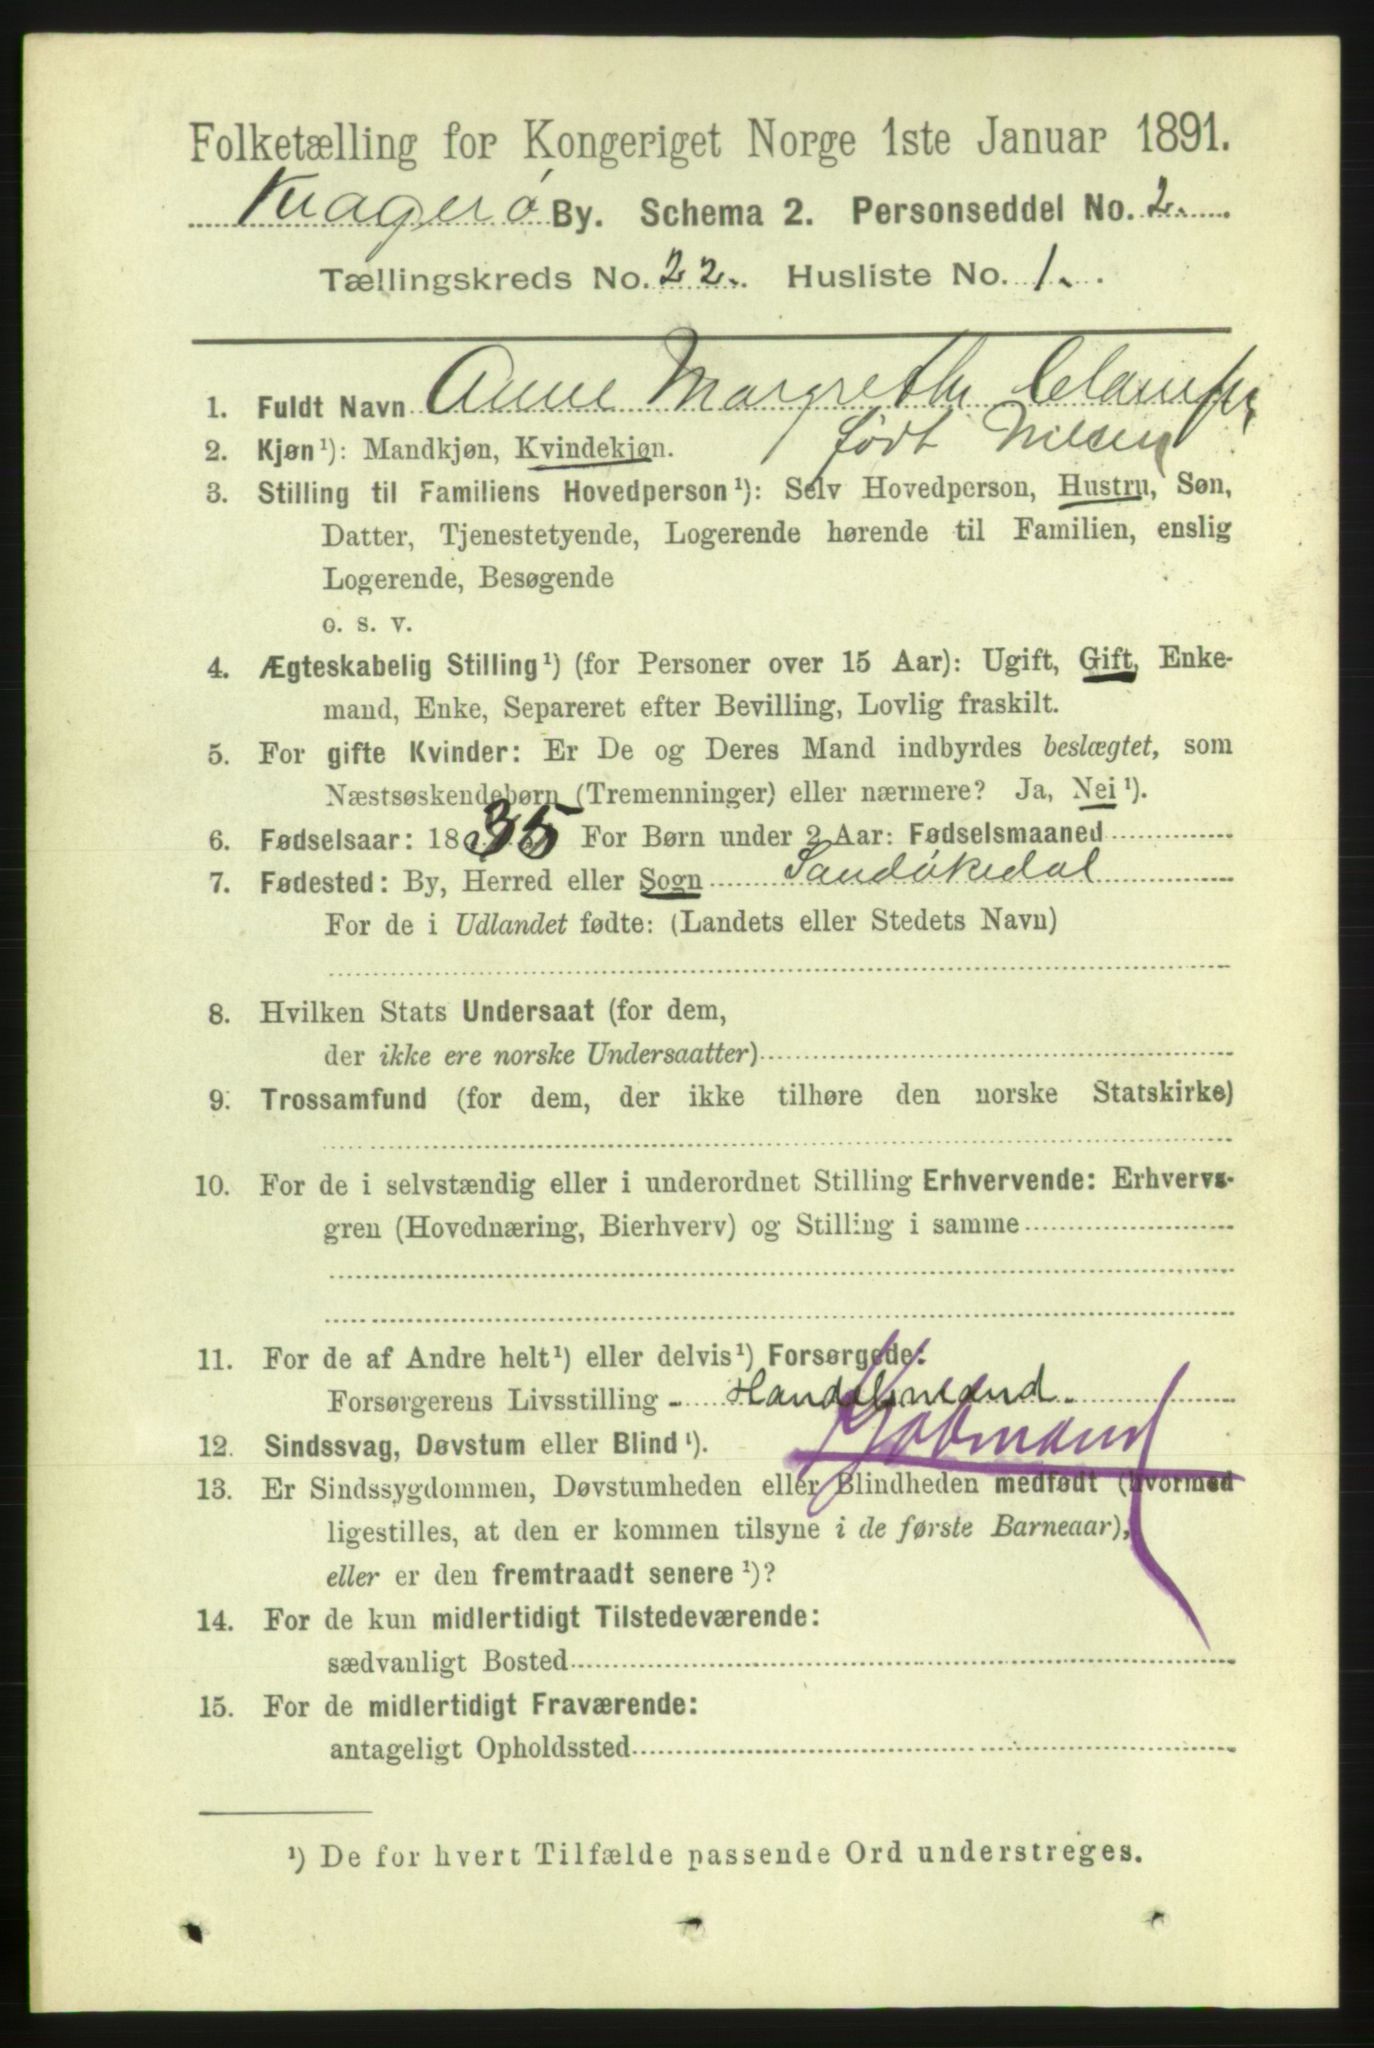 Folketælling for Kongeriget Norge 1ste Januar 1891.
Kragerø By. Schema 2. Personseddel No. 2.
Tællingskreds No. 22. Husliste No. 1.
1. Fuldt Navn Anne Margrethe
født Nilsen
2. Kjøn ¹): Mandkjøn, Kvindekjøn.
3. Stilling til Familiens Hovedperson ¹): Selv Hovedperson, Hustru, Søn,
Datter, Tjenestetyende, Logerende hørende til Familien, enslig
Logerende, Besøgende
o. s. v.
4. Ægteskabelig Stilling ¹) (for Personer over 15 Aar): Ugift, Gift, Enke-
mand, Enke, Separeret efter Bevilling, Lovlig fraskilt.
5. For gifte Kvinder: Er De og Deres Mand indbyrdes beslægtet, som
Næstsøskendebørn (Tremenninger) eller nærmere? Ja, Nei ¹).
6. Fødselsaar: 1835 For Børn under 2 Aar: Fødselsmaaned
7. Fødested: By, Herred eller Sogn Sandøkedal
For de i Udlandet fødte: (Landets eller Stedets Navn)
8. Hvilken Stats Undersaat (for dem,
der ikke ere norske Undersaatter)
9. Trossamfund (for dem, der ikke tilhøre den norske Statskirke)
10. For de i selvstændig eller i underordnet Stilling Erhvervende: Erhvervs-
gren (Hovednæring, Bierhverv) og Stilling i samme
11. For de af Andre helt ¹) eller delvis ¹) Forsørgede:
Forsørgerens Livsstilling - Handelsmand.
Kjøbmand
12. Sindssvag, Døvstum eller Blind ¹).
13. Er Sindssygdommen, Døvstumheden eller Blindheden medfødt (hvormed
ligestilles, at den er kommen tilsyne i de første Barneaar),
eller er den fremtraadt senere ¹)?
14. For de kun midlertidigt Tilstedeværende:
sædvanligt Bosted
15. For de midlertidigt Fraværende:
antageligt Opholdssted
¹) De for hvert Tilfælde passende Ord understreges.